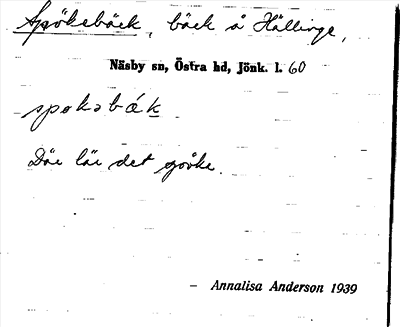 Spökebäck, bäck å Hällinge,
Näsby sn, Östra hd, Jönk. l. 60
spøkəbǽk
Där lär det spöka.
– Annalisa Anderson 1939